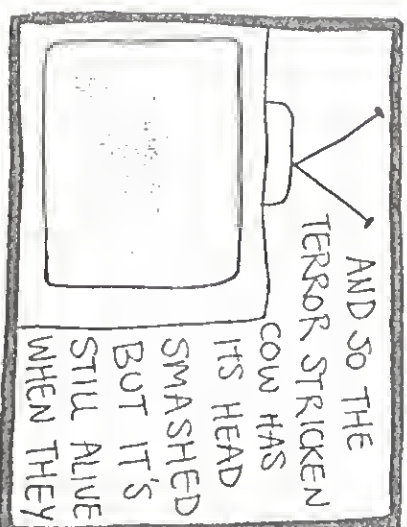 AND SO THE
TERROR STRICKEN
COW HAS
ITS HEAD
SMASHED
BUT IT'S
STILL ALIVE
WHEN THEY